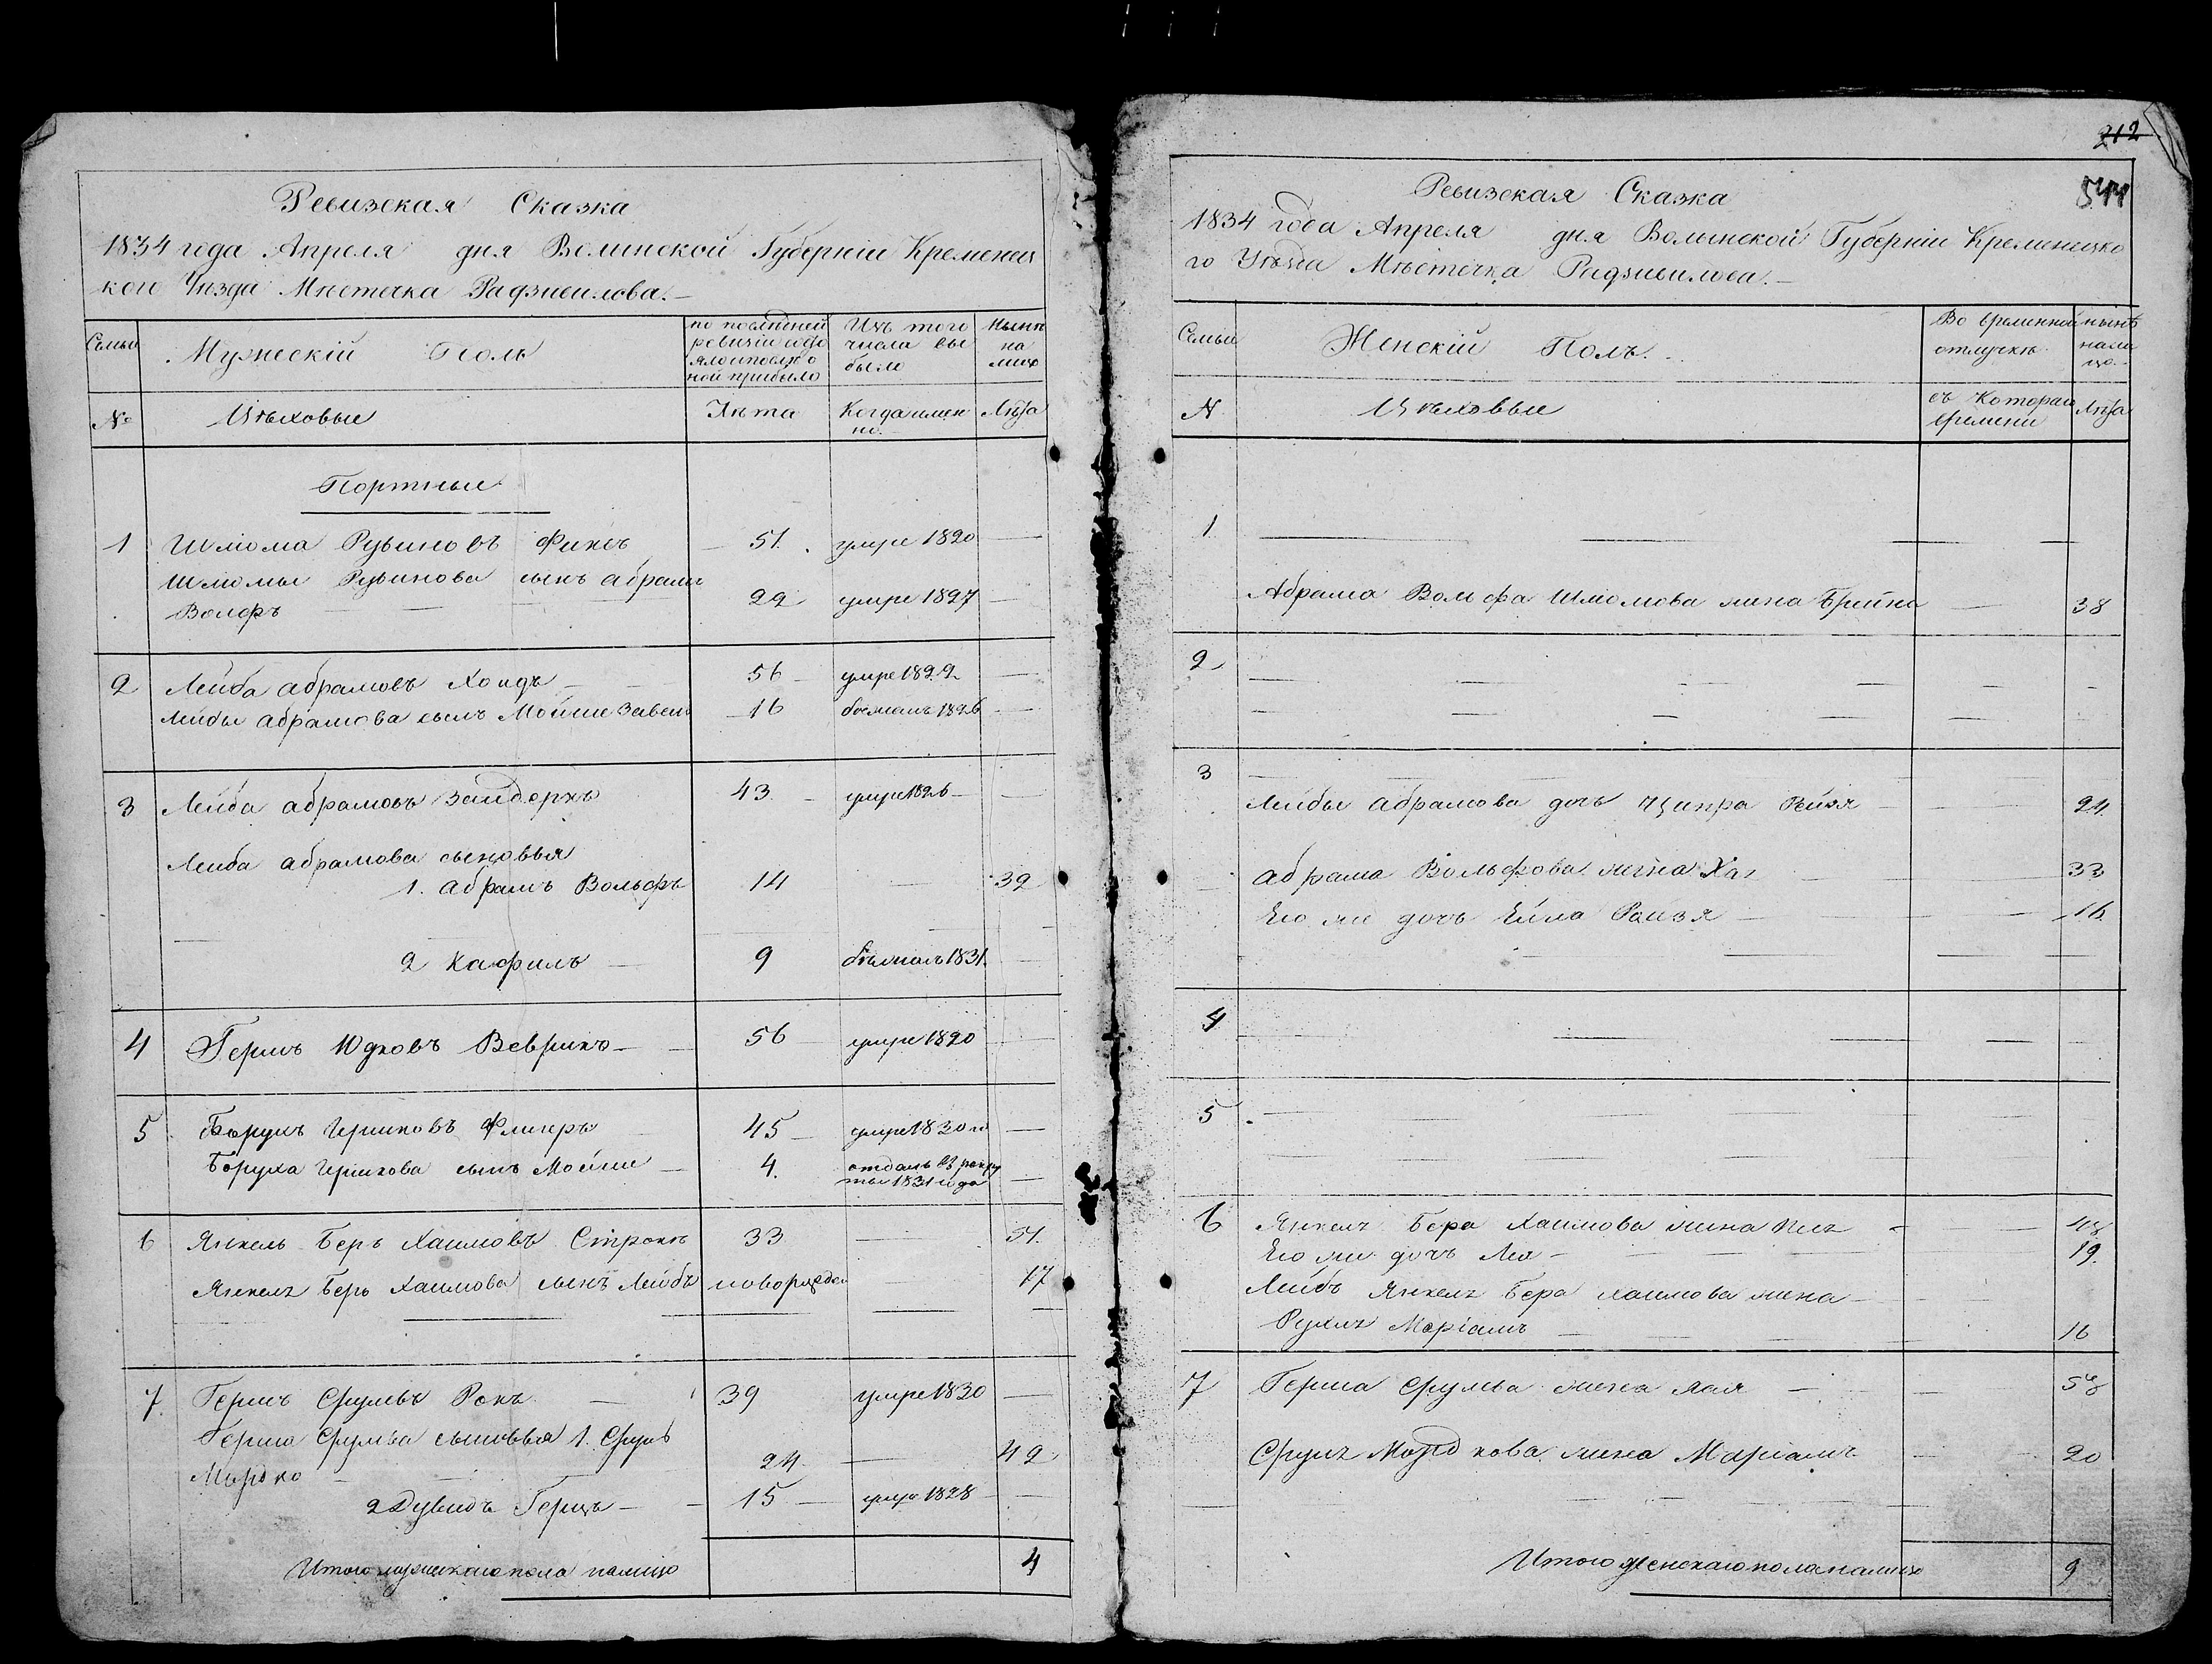 Ревизская Сказка
1834 года Апреля дня Волинской Губернiи Кременец
кого Уизда Мистечка Радзивилова.
Семьи
Мужескiй Полъ
по последней
ревизiи
ной прибыло
Изъ того
числа вы
было
нынѣ
на
лицо
№
Цѣховые
Лѣта
Когда имен
но.
Лѣта
Портные
1 Шлiома Рувиновъ Фиксъ 51. умре 1820
Шлiомы Рувинова сынъ абрамъ
Волфъ 22 умре 1827
2 Лейба абрамовъ Хондъ 56 умре 1822
Лейбы абрамова сынъ Мойше 16 1826
3 Лейба абрамовъ 43 умре 1826
Лейба абрамова сыновья
1. абрамъ Вольфъ 14 32
2 Кафилъ 9 1831.
4 Гершъ Юдковъ Веврикъ 56 умре 1820
5 Борухъ Гершковъ 45 умре 1830 го
Боруха Гершкова сынъ Мойше 4. отданъ въ рекру
ты 1831 года
6 Янкель Беръ Хаимовъ 33
Янкель Беръ Хаимова сынъ Лейбъ 17
7 Гершъ Срулевъ Рокъ 39 умре 1830
Герша Срулева сыновья 1. Сруль
Мордко 24
2 Дувидъ Герцъ 15 умре 1828
Итого мужескаго пола налицо 4
212
Ревизская Сказка
1834 года Апреля дня Волынской Губернiи Кременецко
го Уѣзда Мѣстечка Радзивилова.
Семьи
Женскiй Полъ.
Во временной
отлучкѣ
нынѣ
нали
цо.
N
Цѣховые
съ Котораго
времени
Лѣта
1
Абрама Вольфа Шлiомова жена Брейна 38
2
3
Лейбы абрамова дочь Ципра Рейзя 24.
абрама Вольфова жена 33
Его же дочь Ейла Ройзя 16.
4
5
6 Янкель Бера Хаимова жена
Его же дочь Лея 19.
Лейбъ Янкель Бера Хаимова жена
Рухля Марiамъ 16
7 Герша Срулева жена
Сруль Мордкова жена Марiамъ 20
Итого женскаго пола налицо 9